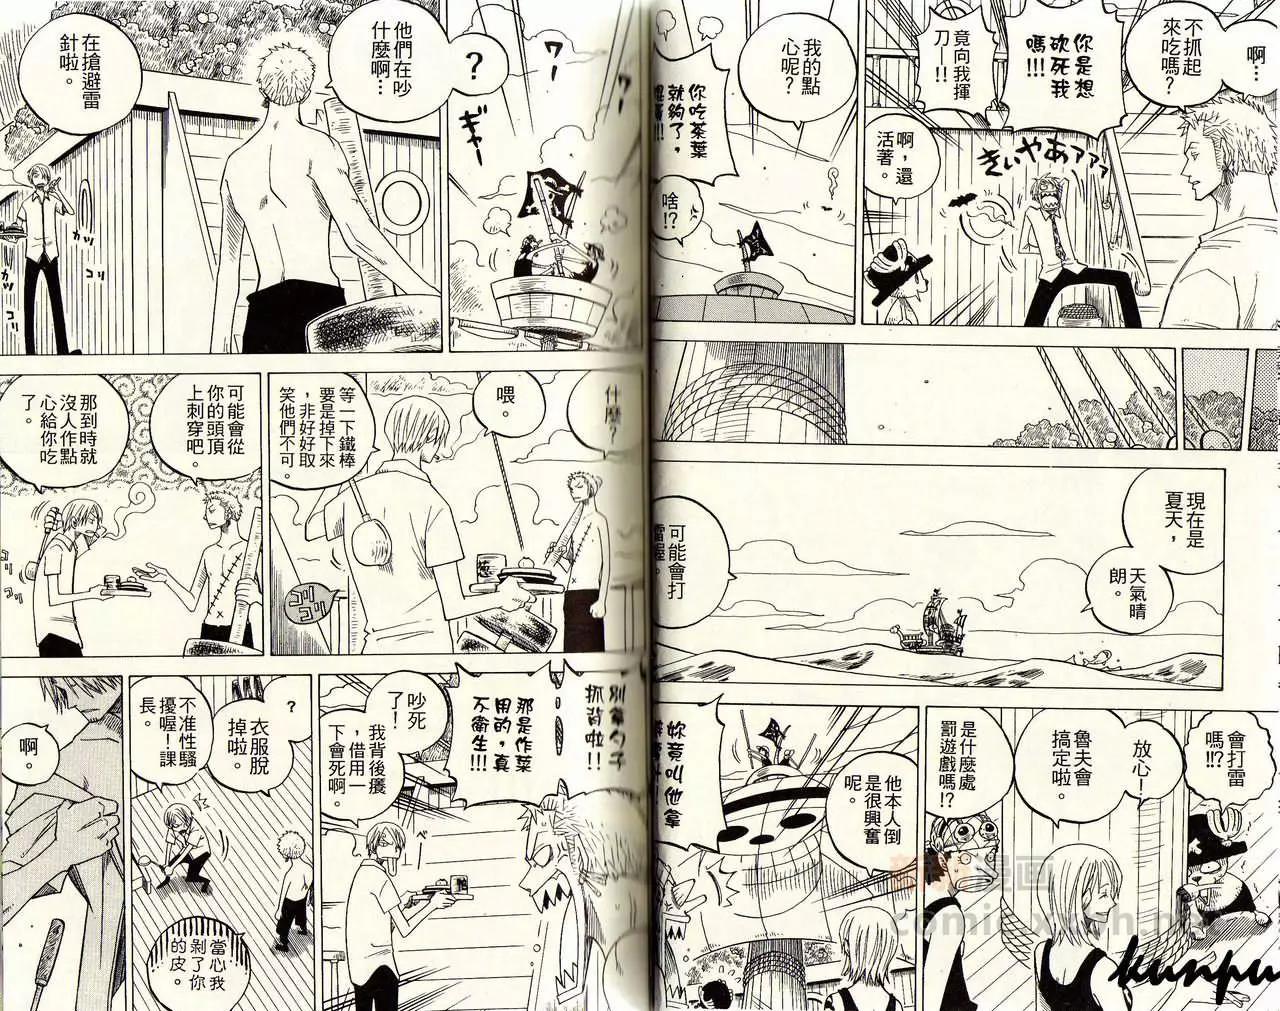 啊…
不抓起
來吃嗎?
你是想
砍死我
嗎!!!
竟向我揮
刀—!!
きいやあァァァ
啊,還
活著。
我的點
心呢?
你吃茶葉
就夠了,
啥!?
現在是
夏天,
天氣晴
朗。
可能會打
雷喔。
會打雷
嗎!!?
放心!
魯夫會
搞定啦。
是什麼處
罰遊戲嗎!?
他本人倒
是很興奮
呢。
妳竟叫他拿
?
他們在吵
什麼啊…
在搶避雷
針啦。
カツ
カツ
コリ
コリ
什麼?
喂。
等一下鐵棒
要是掉下來
,非好好取
笑他們不可。
コリ
コリ
可能會從
你的頭頂
上刺穿吧。
那到時就
沒人作點
心給你吃
了。
別拿勺子
抓背啦!!
那是作菜
用的,真
不衛生!!!
吵死
了!
我背後癢
,借用一
下會死啊。
?
衣服脫
掉啦。
不准性騷
擾喔!課
長。
當心我
剝了你
的皮。
啊。
kunpu